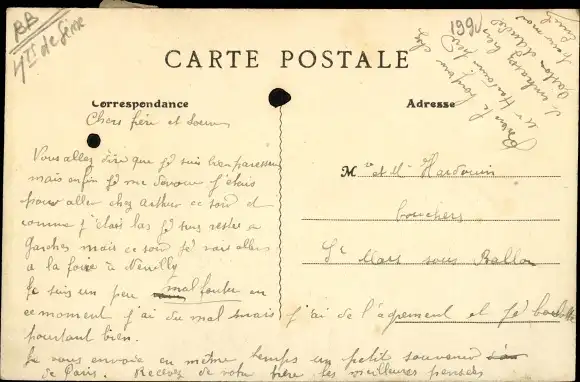 BB
Hts de Seine
CARTE POSTALE
Correspondance
Adresse
Chers frère et soeur
Vous allez dire que je suis bien paresseux
mais enfin je me dévoue j'étais
pour aller chez Arthur ce soir et
comme j'étais las je suis resté a
Garches mais ce soir je vais aller
a la foire à Neuilly
Je suis un peu mal foutu en
ce moment j'ai du mal mais j'ai de l'agrement et je boulotte
pourtant bien.
Je vous envoie en même temps un petit souvenir
de Paris. Recevez de votre frère les meilleures pensées
Mr et Me Hardouin
bouchers
St Mars sous Ballon
bonjour chez
Hardouin
embrassez bien
pour moi